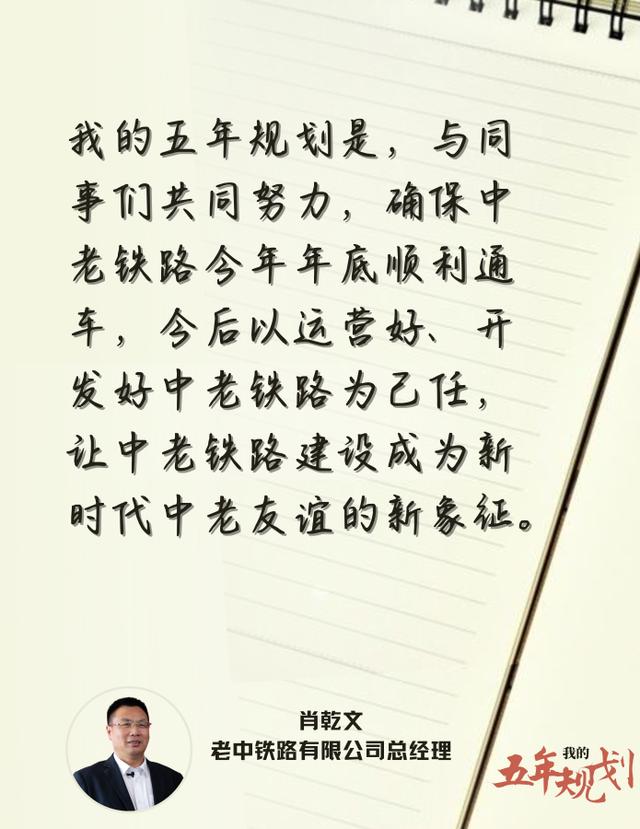 我的五年规划是，与同
事们共同努力，确保中
老铁路今年年底顺利通
车，今后以运营好、开
发好中老铁路为己任，
让中老铁路建设成为新
时代中老友谊的新象征。
肖乾文
老中铁路有限公司总经理
我的
五年规划